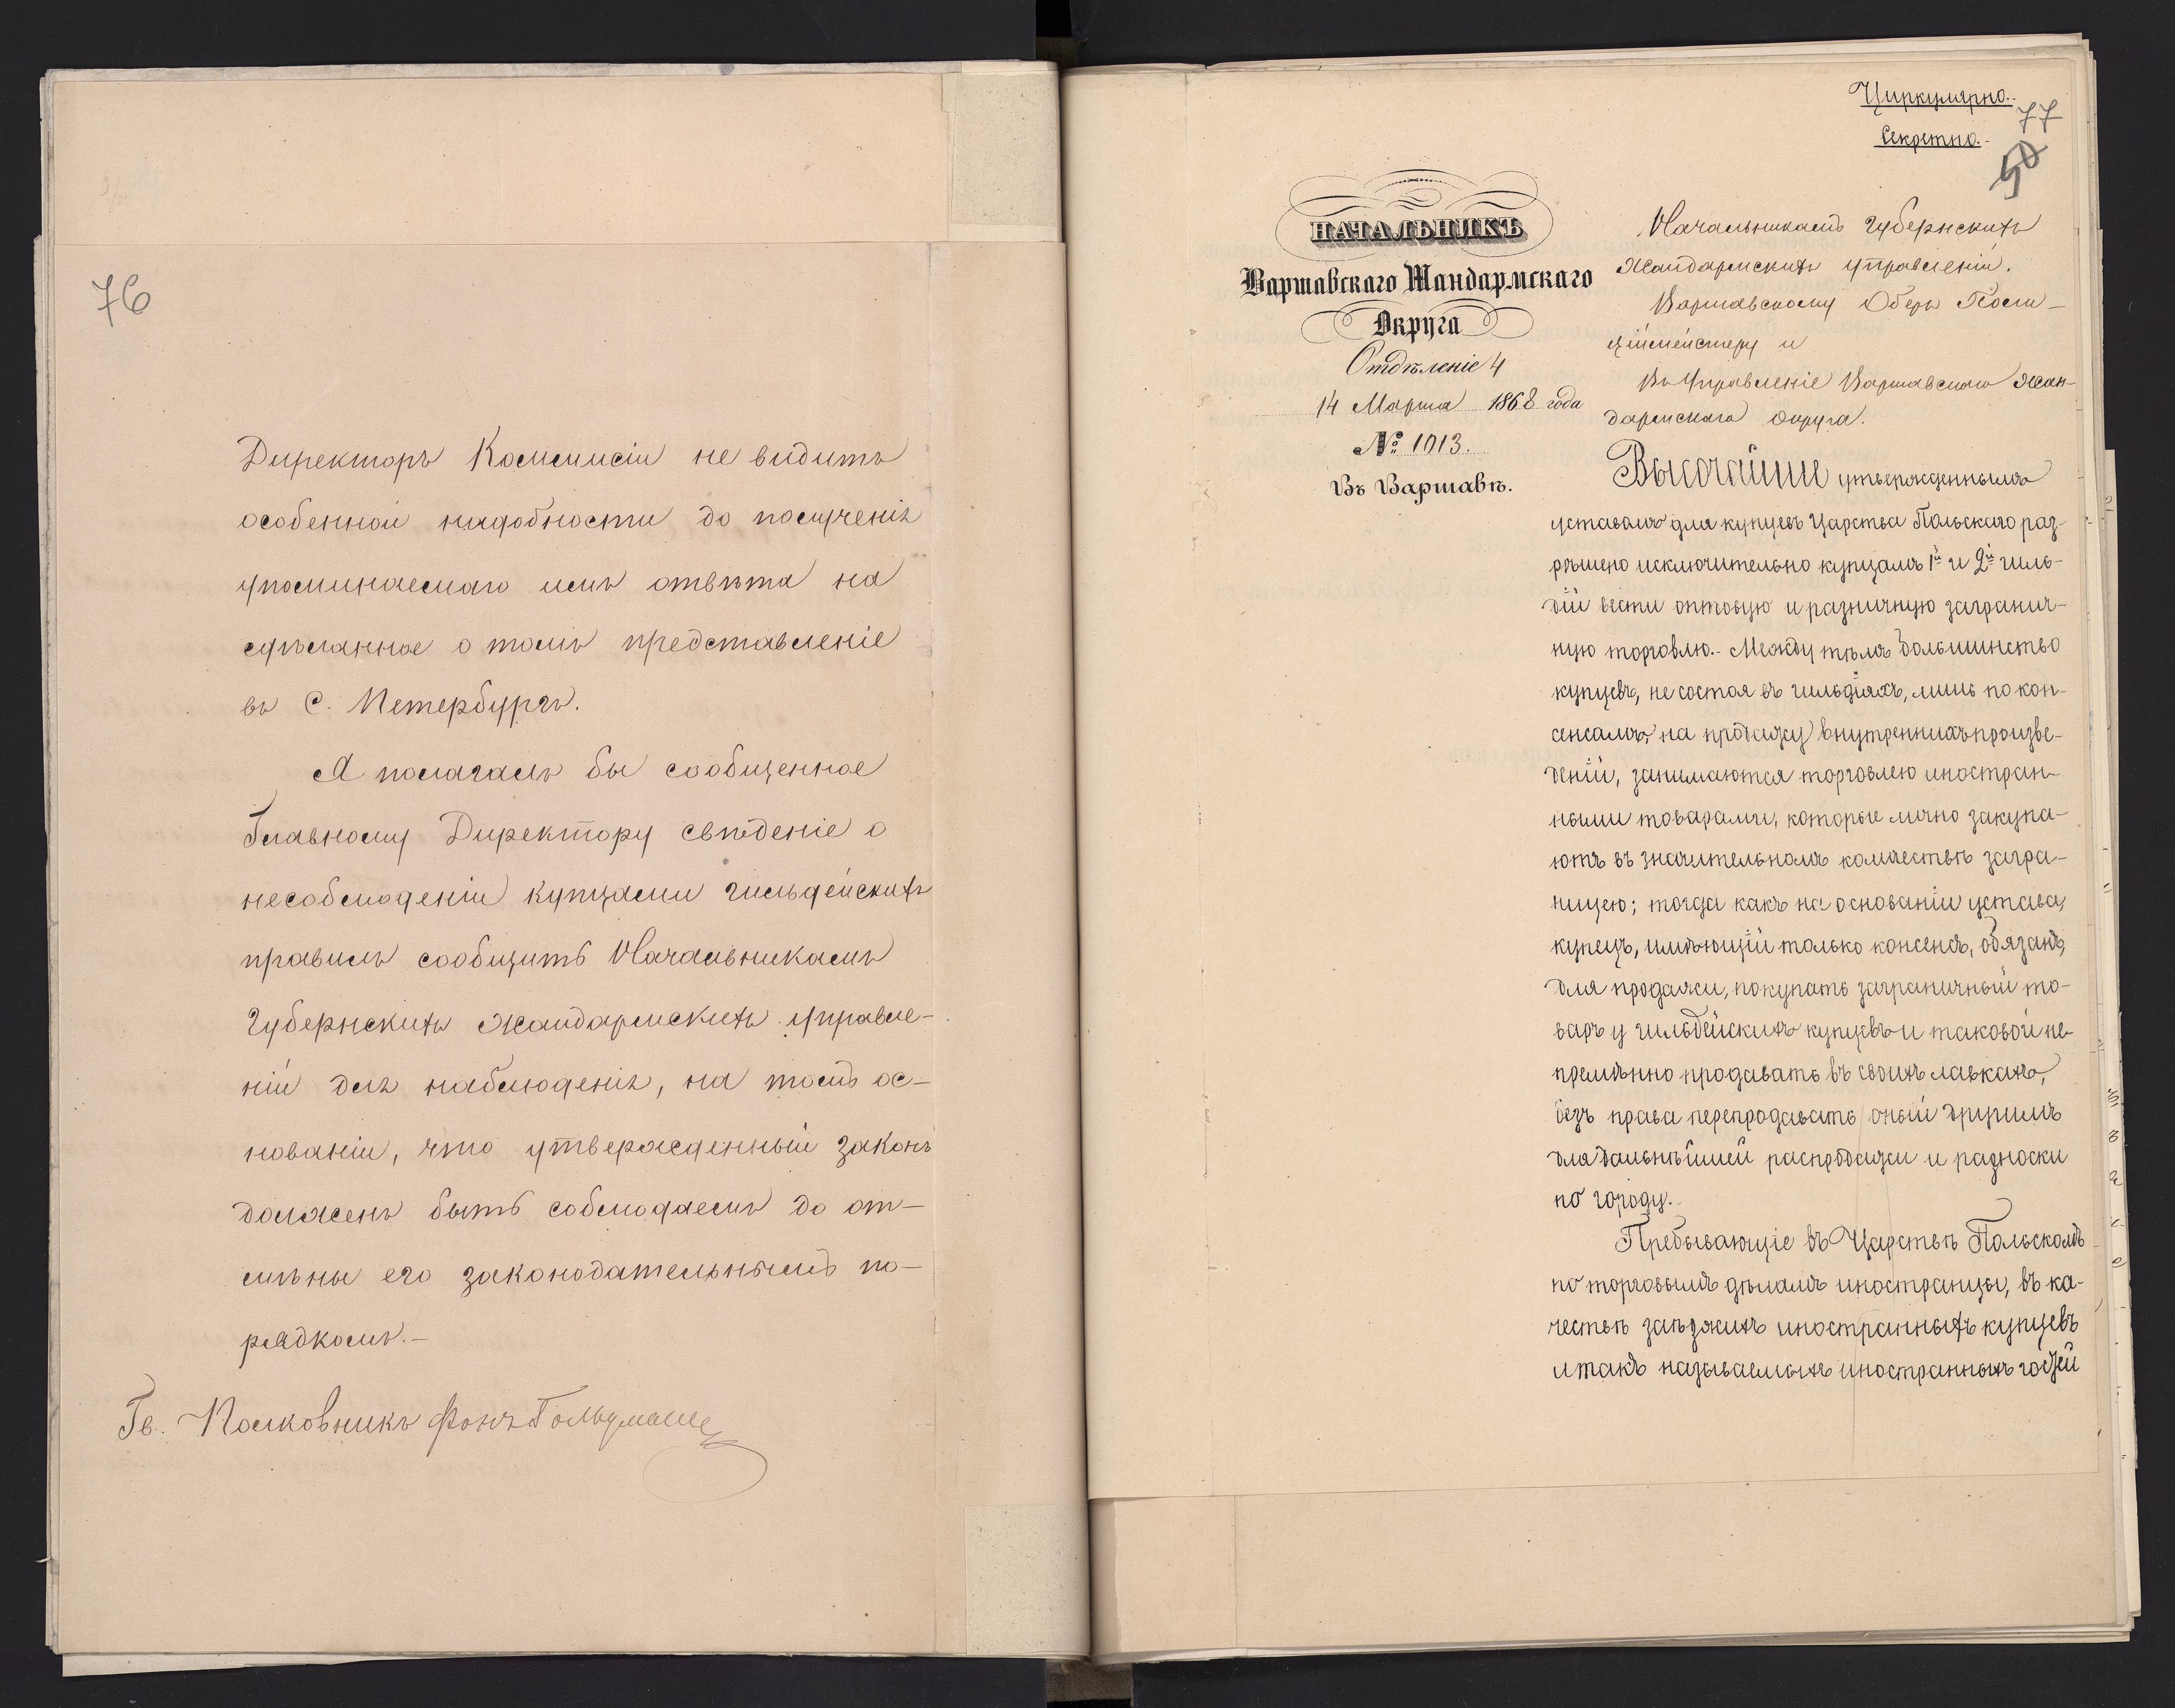 76
Директоръ Коммисіи не видитъ
особенной надобности до полученія
упоминаемаго имъ отвѣта на
сдѣланное о томъ представленіе
въ С. Петербургъ.
Я полагалъ бы сообщенное
Главному Директору свѣденіе о
несоблюденіи купцами гильдейскихъ
правилъ сообщить Начальникамъ
Губернскихъ Жандармскихъ управле-
ній для наблюденія, на томъ ос-
нованіи, что утвержденный законъ
долженъ быть соблюдаемъ до от-
мѣны его законодательнымъ по-
рядкомъ.-
Гв. Полковникъ фонъ
Циркулярно.
77
Секретно.
50
НАЧАЛЬНИКЪ
Варшавскаго Жандармскаго
Округа
Отдѣленіе 4
14 Марта 1868 года
№ 1013.
Въ Варшавѣ.
Начальникамъ Губернскихъ
Жандармскихъ управленій.
Варшавскому Оберъ Поли-
ціймейстеру и
Въ Управленіе Варшавскаго Жан-
дармскаго Округа.
Высочайше утвержденнымъ
уставомъ для купцевъ Царства Польскаго раз-
рѣшено исключительно купцамъ 1й и 2й гиль-
дій вести оптовую и разничную загранич-
ную торговлю.- Между тѣмъ большинство
купцевъ, не состоя въ гильдіяхъ, лишь по кон-
сенсамъ, на продажу внутреннихъ произве-
деній, занимаются торговлею иностран-
ными товарами, которые лично закупа-
ютъ въ значительномъ количествѣ загра-
ницею; тогда какъ на основаніи устава,
купецъ, имѣющій только консенсъ, обязанъ,
для продажи, покупать заграничный то-
варъ у гильдейскихъ купцевъ и таковой не-
премѣнно продавать въ своихъ лавкахъ,
безъ права перепродавать оный другимъ
для дальнѣйшей распродажи и разноски
по городу.
Пребывающіе въ Царствѣ Польскомъ
по торговымъ дѣламъ иностранцы, въ ка-
чествѣ заѣзжихъ иностранныхъ купцевъ
и такъ называемыхъ иностранныхъ гостей